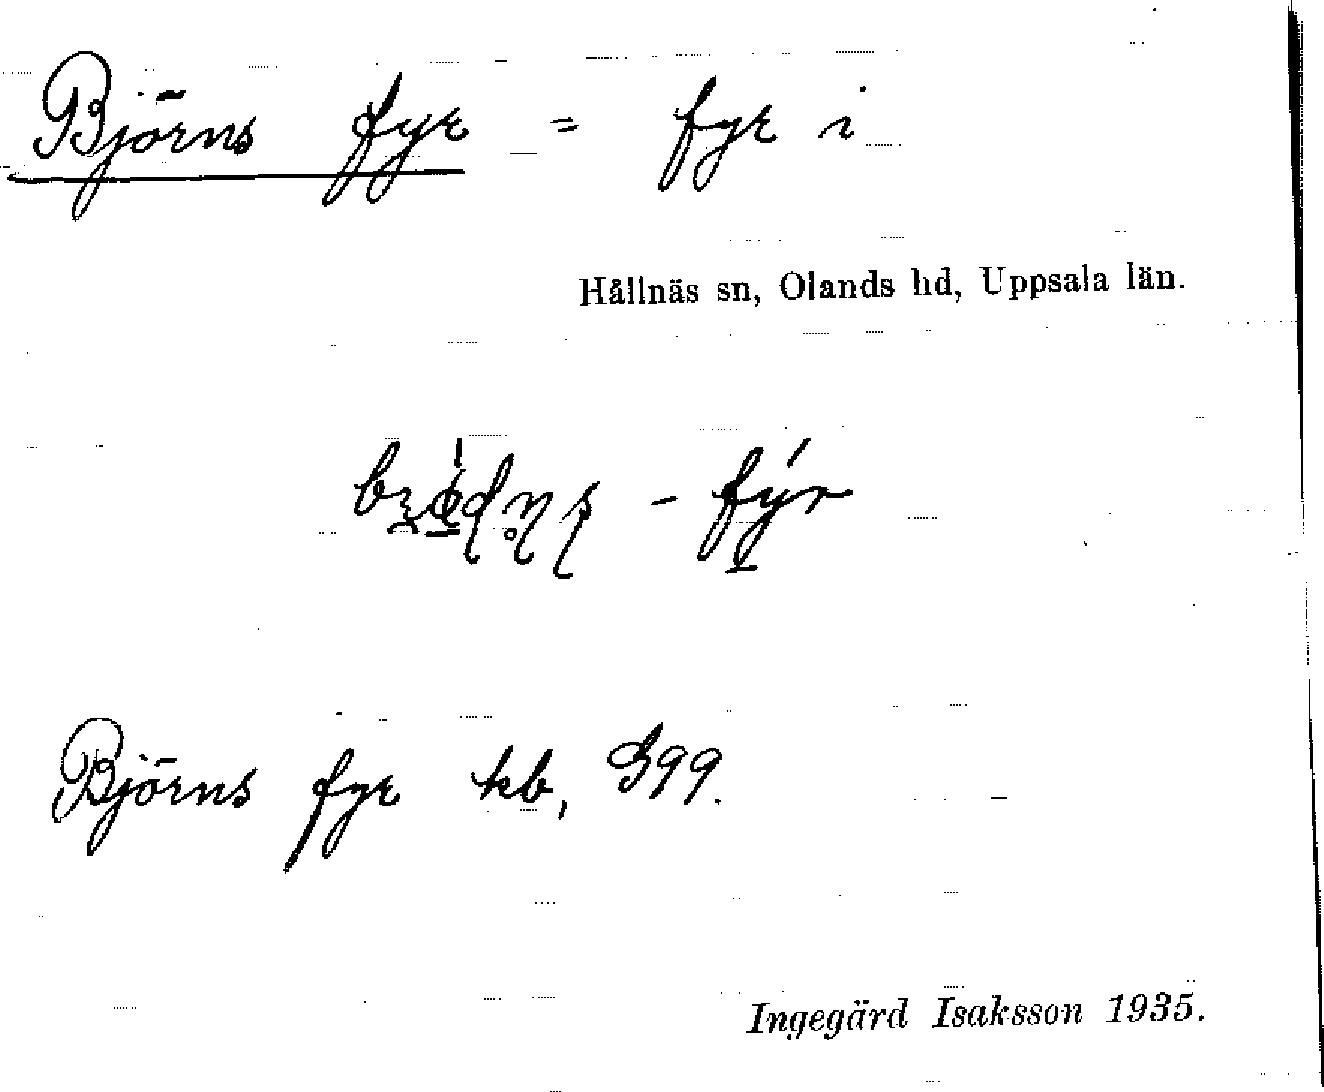 Björns fyr = fyr i
Hållnäs sn, Olands hd, Uppsala län.
Björns fyr kb, 399.
Ingegärd Isaksson 1935.